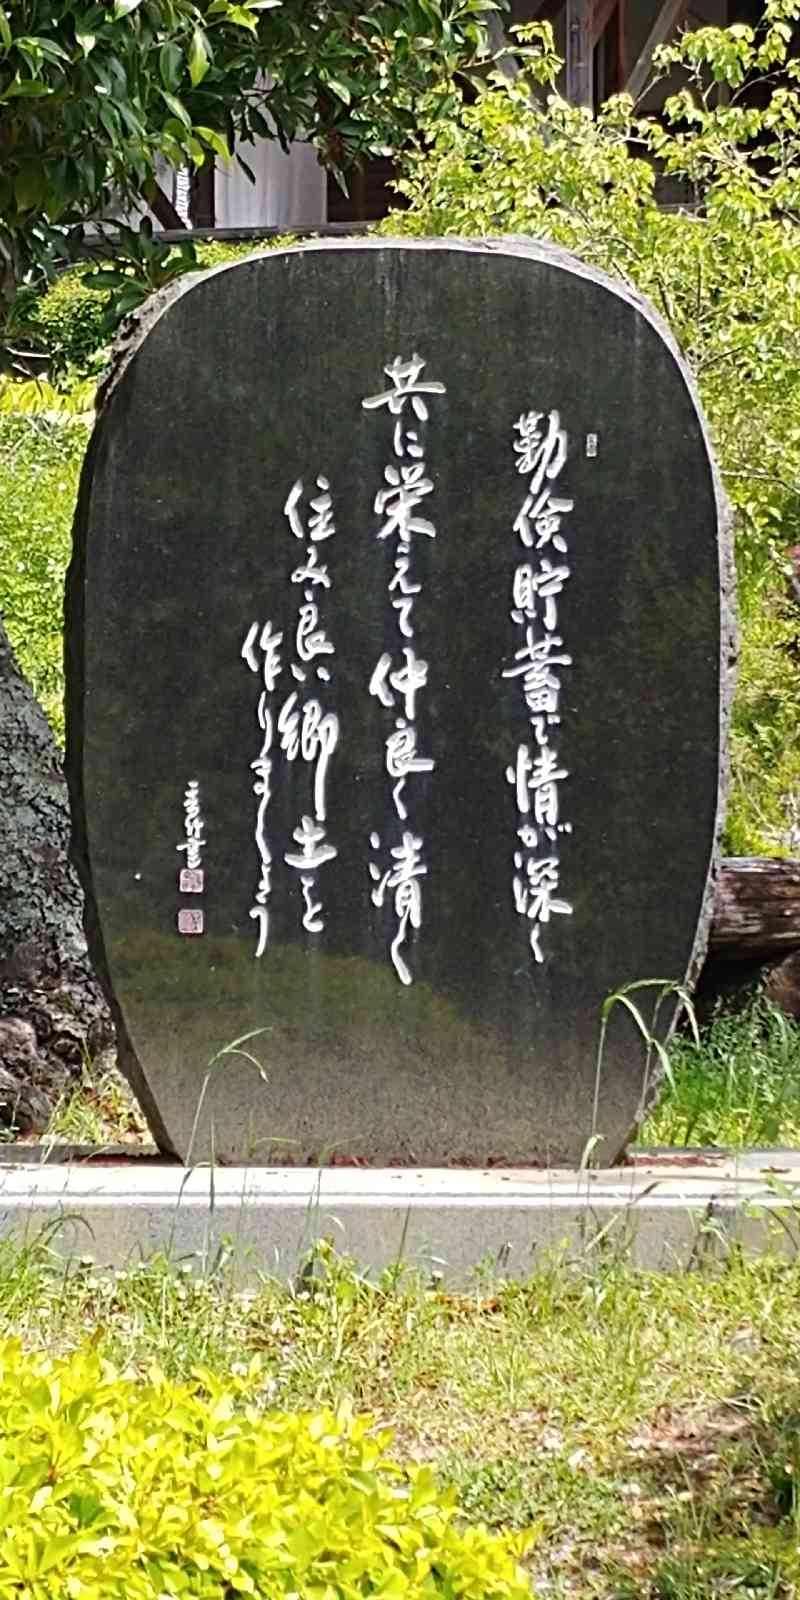 勤倹貯蓄で情が深く
共に栄えて仲良く清く
住み良い郷土を
作りましょう